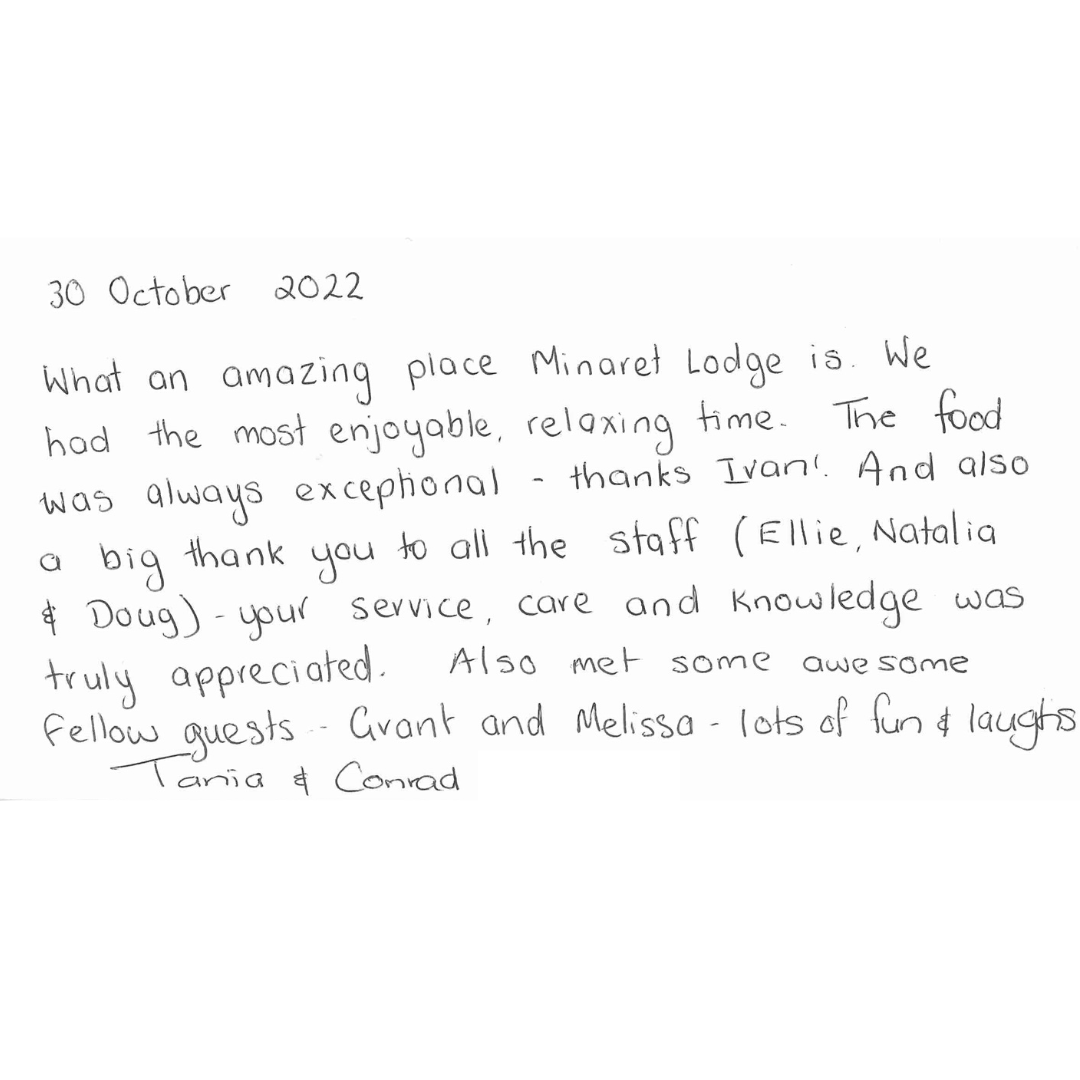 30 October 2022
What an amazing place Minaret Lodge is. We
had the most enjoyable, relaxing time. The food
was always exceptional - thanks Ivan! And also
a big thank you to all the staff (Ellie, Natalia
& Doug) - your service, care and knowledge was
truly appreciated. Also met some awesome
fellow guests - Grant and Melissa - lots of fun & laughs
Tania & Conrad